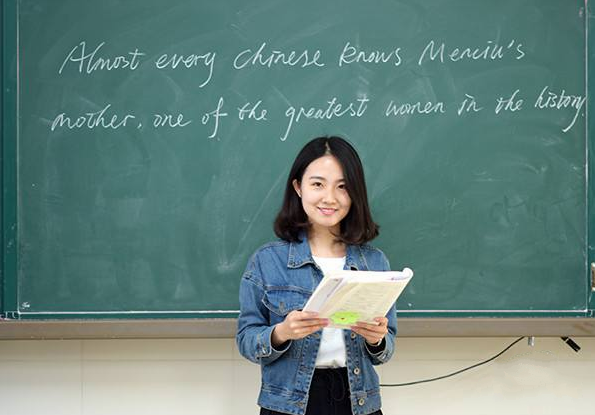 Almost every Chinese knows Menciu's
mother, one of the greatest women in the history